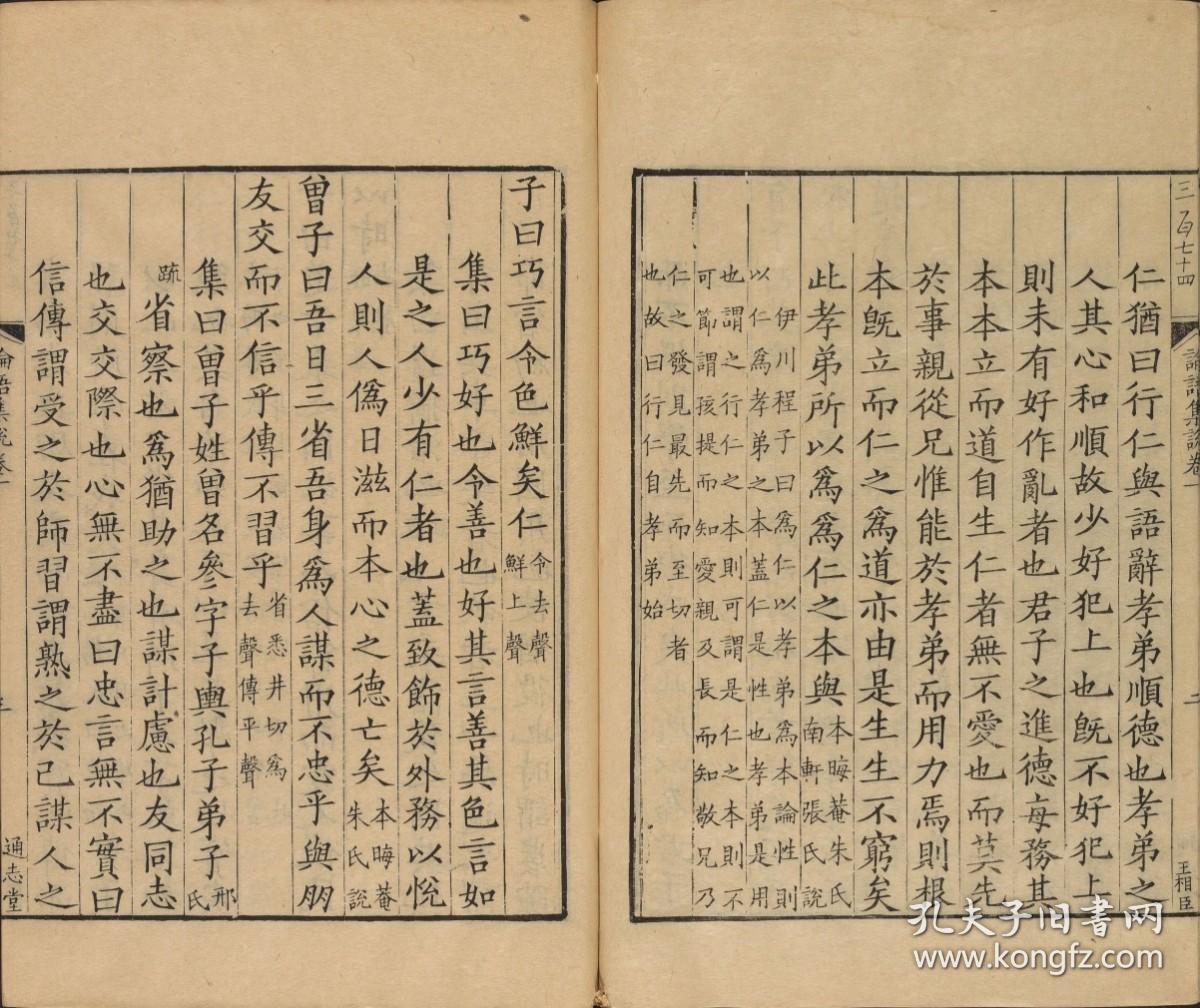 三百七十四
論語集說卷一
二
王相臣
仁猶曰行仁與語辭孝弟順德也孝弟之
人其心和順故少好犯上也旣不好犯上
則未有好作亂者也君子之進德每務其
本本立而道自生仁者無不愛也而莫先
於事親從兄惟能於孝弟而用力焉則根
本旣立而仁之爲道亦由是生生不窮矣
此孝弟所以爲爲仁之本與
本晦菴朱氏
南軒張氏說
伊川程子曰爲仁以孝弟爲本論性則
以仁爲孝弟之本蓋仁是性也孝弟是用
也謂之行仁之本則可謂是仁之本則不
可節謂孩提而知愛親及長而知敬兄乃
仁之發見最先而至切者
也故曰行仁自孝弟始
子曰巧言令色鮮矣仁
令去聲
鮮上聲
集曰巧好也令善也好其言善其色言如
是之人少有仁者也蓋致飾於外務以悅
人則人僞日滋而本心之德亡矣
本晦菴
朱氏說
曾子曰吾日三省吾身爲人謀而不忠乎與朋
友交而不信乎傳不習乎
省悉井切爲
去聲傳平聲
集曰曾子姓曾名參字子輿孔子弟子
邢氏
疏
省察也爲猶助之也謀計慮也友同志
也交交際也心無不盡曰忠言無不實曰
信傳謂受之於師習謂熟之於己謀人之
論語集說卷一
三
通志堂
孔夫子旧书网
www.kongfz.com